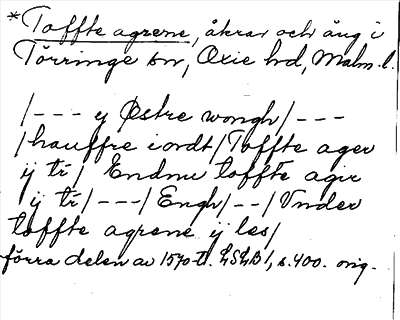 *Toffte agrene, åkrar och äng i
Törringe sn, Oxie hd, Malm. l.
/--- y Østre wongh/ ---
/hauffre iordt/Toffte ager
ij tr/ Endnu toffte ager
ij tr/---/Engh/--/Vnder
toffte agrene ij les/
förra delen av 1570-t. LSLB 1, s. 400. orig.